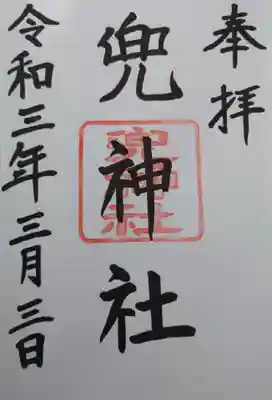 奉拝
兜神社
兜神社
令和三年三月三日